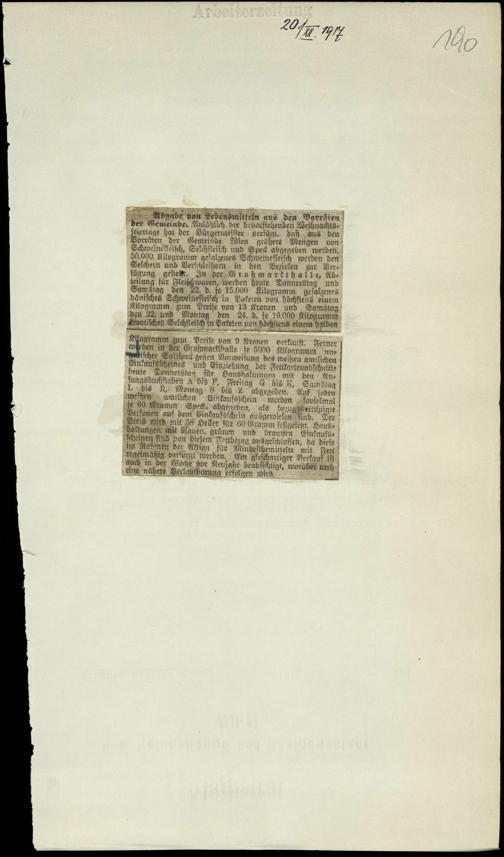 Arbeiterzeitung
20/XII. 1917
190
Abgabe von Lebensmitteln aus den Vorräten
der Gemeinde. Anläßlich der bevorstehenden Weihnachts-
feiertage hat der Bürgermeister verfügt, daß aus den
Vorräten der Gemeinde Wien größere Mengen von
Schweinefleisch, Selchfleisch und Speck abgegeben werden.
50.000 Kilogramm gesalzenes Schweinefleisch werden den
Selchern und Verschleißern in den Bezirken zur Ver-
fügung gestellt. In der Großmarkthalle, Ab-
teilung für Fleischwaren, werden heute Donnerstag und
Samstag den 22. d. je 15.000 Kilogramm gesalzenes
dänisches Schweinefleisch in Paketen von höchstens einem
Kilogramm zum Preise von 13 Kronen und Samstag
den 22. und Montag den 24. d. je 10.000 Kilogramm
kroatisches Selchfleisch in Paketen von höchstens einem halben
Kilogramm zum Preise von 9 Kronen verkauft. Ferner
werden in der Großmarkthalle je 5000 Kilogramm
Salzspeck gegen Vorweisung des weißen amtlichen
Einkaufscheines und Einziehung der Fettkartenabschnitte
heute Donnerstag für Haushaltungen mit den An-
fangsbuchstaben A bis F, Freitag G bis K, Samstag
L bis R, Montag S bis Z abgegeben. Auf jeden
weißen amtlichen Einkaufschein werden sovielmal
je 60 Gramm Speck abgegeben, als bezugsberechtigte
Personen auf dem Einkaufschein ausgewiesen sind. Der
Preis wird mit 58 Heller für 60 Gramm festgesetzt. Haus-
haltungen mit blauen, grünen und braunen Einkaufs-
scheinen sind von diesem Fettbezug ausgeschlossen, da diese
im Rahmen der Aktion für Mindestbemittelte mit Fett
regelmäßig versorgt werden. Ein gleichartiger Verkauf ist
auch in der Woche vor Neujahr beabsichtigt, worüber noch
eine nähere Verlautbarung erfolgen wird.
WIEN
k. k. Reichshaupt- und Residenzstadt
Magistrat